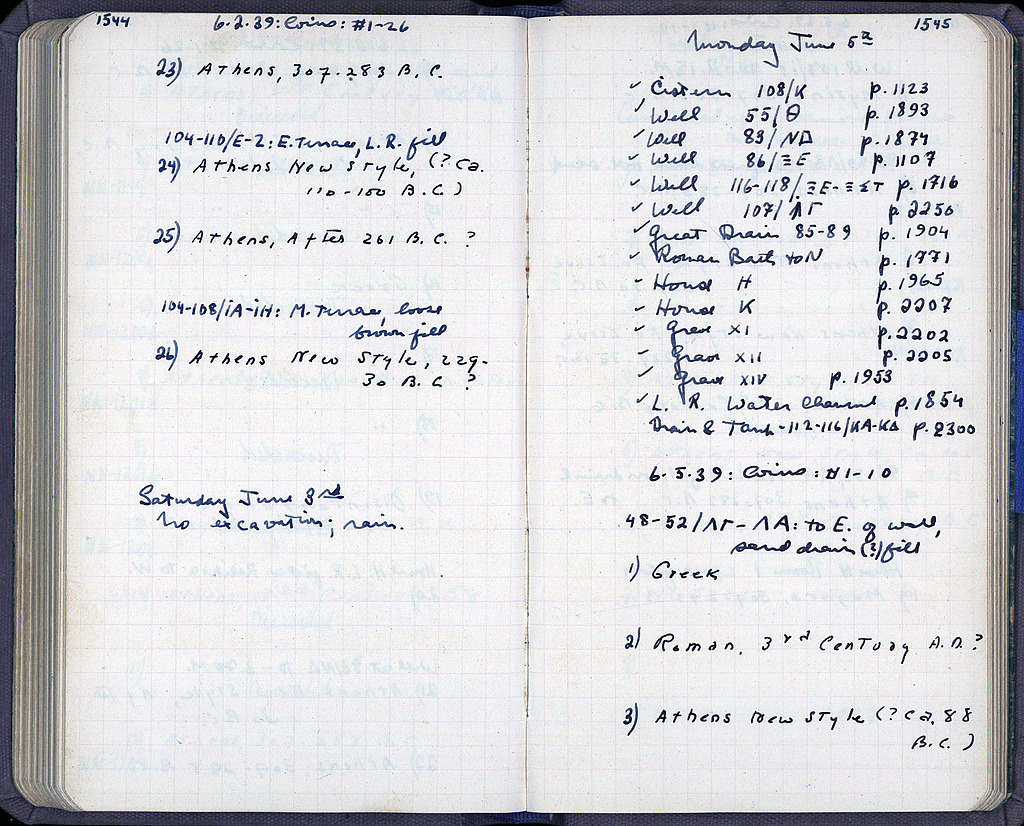 1544
6.2.39: Coins: #1-26
23) Athens, 307-283 B.C.
104-110/E-Z: E. Terrace, L.R. fill
24) Athens New Style, (? ca.
110-100 B.C.)
25) Athens, After 261 B.C. ?
104-108/IA-IH: M. Terrace, loose
brown fill
26) Athens New Style, 229-
30 B.C. ?
Saturday June 3rd
No excavation; rain.
1545
Monday June 5th
✓ Cistern 108/K p. 1123
✓ Well 55/Θ p. 1893
✓ Well 83/ΝΔ p. 1874
✓ Well 86/ΞΕ p. 1107
✓ Well 116-118/ΞΕ-ΞΣΤ p. 1716
✓ Well 107/ΛΓ p. 2256
✓ Great Drain 85-89 p. 1904
✓ Roman Bath to N p. 1771
✓ House H p. 1965
✓ House K p. 2207
✓ Grave XI p. 2202
✓ Grave XII p. 2205
✓ Grave XIV p. 1953
✓ L. R. Water Channel p. 1854
Drain & Tank-112-116/ΚΑ-ΚΔ p. 2300
6.5.39: Coins: #1-10
48-52/ΛΓ-ΛΑ: to E. of wall,
sand drain (?) fill
1) Greek
2) Roman, 3rd Century A.D.?
3) Athens New Style (? ca. 88
B.C.)